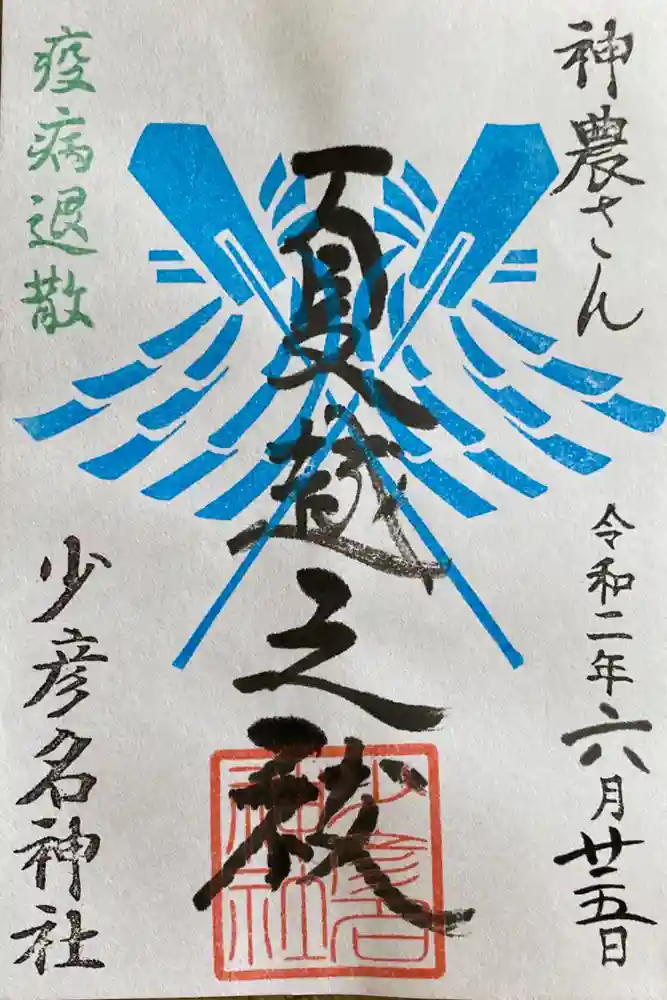 神農さん
令和二年六月廿五日
夏越之祓
少彦名神社
疫病退散
少彦名神社